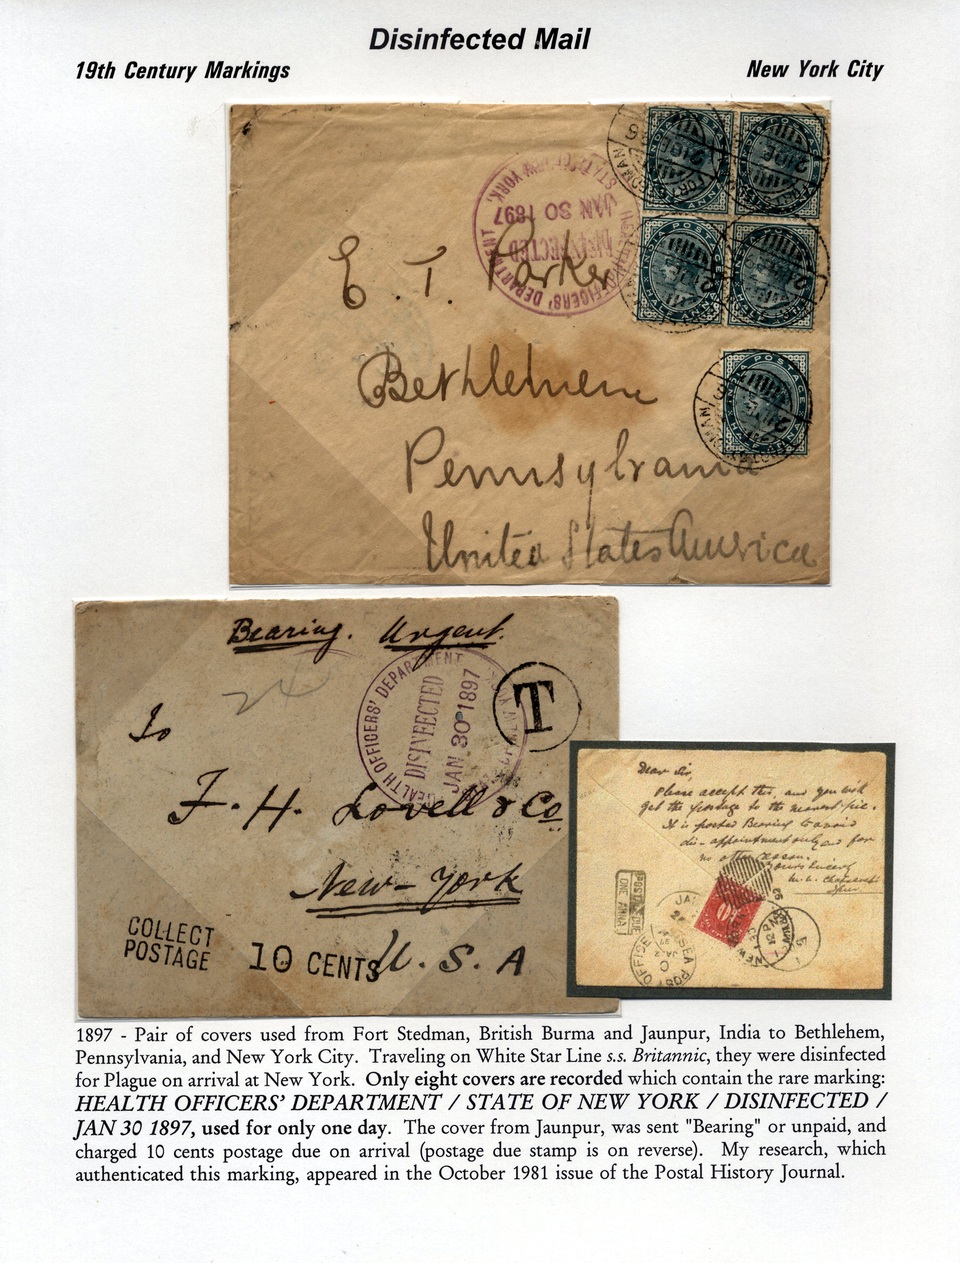 Disinfected Mail
19th Century Markings
New York City
HEALTH OFFICERS' DEPARTMENT
STATE OF NEW YORK.
DISINFECTED
JAN 30 1897
INDIA POSTAGE
HALF ANNA
INDIA POSTAGE
HALF ANNA
INDIA POSTAGE
HALF ANNA
INDIA POSTAGE
HALF ANNA
INDIA POSTAGE
HALF ANNA
E. T. Parker
Bethlehem
Pennsylvania
United States America
Bearing. Urgent.
HEALTH OFFICERS' DEPARTMENT
STATE OF NEW YORK
DISINFECTED
JAN 30 1897
T
To
F. H. Lovell & Co
New-York
U. S. A
COLLECT
POSTAGE
10 CENTS
Dear Sir,
Please accept this, and you will
get the postage to the nearest pie.
It is posted Bearing to avoid
dis-appointment only and for
no other reason.
Yours sincerely
POSTAGE DUE
ONE ANNA
SEA POST OFFICE
1897 - Pair of covers used from Fort Stedman, British Burma and Jaunpur, India to Bethlehem,
Pennsylvania, and New York City. Traveling on White Star Line s.s. Britannic, they were disinfected
for Plague on arrival at New York. Only eight covers are recorded which contain the rare marking:
HEALTH OFFICERS' DEPARTMENT / STATE OF NEW YORK / DISINFECTED /
JAN 30 1897, used for only one day. The cover from Jaunpur, was sent "Bearing" or unpaid, and
charged 10 cents postage due on arrival (postage due stamp is on reverse). My research, which
authenticated this marking, appeared in the October 1981 issue of the Postal History Journal.